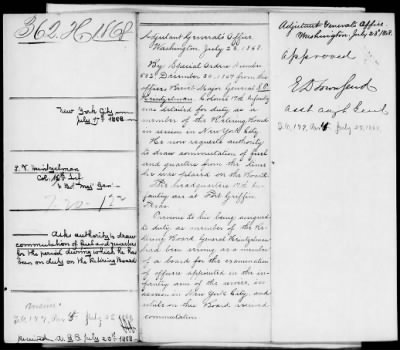 362. H. 1868
New York City
July 17th 1868
S. P. Heintzelman
Col. 17th Inf
& Bt. Maj. Gen.
Asks authority to draw
commutation of fuel and quarters
for the period during which he has
been on duty on the Retiring Board
July 22 1868
Received A. G. O. July 20th 1868
Adjutant General's Office,
Washington, July 22, 1868.
By Special Orders number
582 December 30, 1867 from this
office Brevet Major General S. P.
Heintzelman Colonel 17th Infantry
was detailed for duty as a
member of the Retiring Board
in session in New York City.
He now requests authority
to draw commutation of fuel
and quarters from the time
he was placed on the Board.
The headquarters 17th In-
fantry are at Fort Griffin
Texas.
Previous to his being assigned
to duty as member of the Re-
tiring Board General Heintzelman
had been serving as a member
of a board for the examination
of officers appointed in the in-
fantry arm of the service, in
session in New York City, and
while on this Board received
commutation.
Adjutant General's Office,
Washington, July 28th 1868.
Approved
E D Townsend
Asst Adjt Genl
July 28, 1868